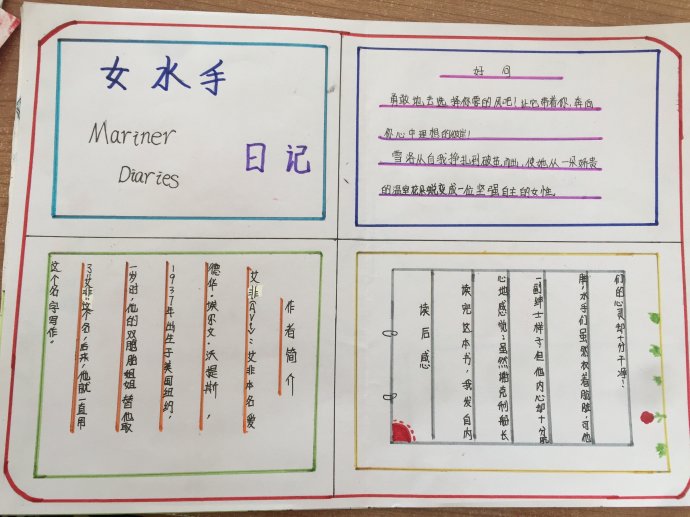 女水手
Mariner
Diaries
日记
好句
勇敢地去选择你要的风吧！让它带着你，奔向
你心中理想的
雪洛从自我挣扎到破茧而出，使她从一朵娇贵
的温室花朵蜕变成一位坚强自主的女性。
作者简介
艾非：艾非本名爱
德华·埃尔文·沃提斯，
1937年出生于美国纽约，
一岁时，他的双胞胎姐姐替他取
了艾非这个名，后来，他就一直用
这个名字写作。
读后感
读完这本书，我发自内
心地感觉：虽然谢克利船长
一副绅士样子但他内心却十分肮
脏，水手们虽然衣着脏脏，可他
们的心灵却十分干净！